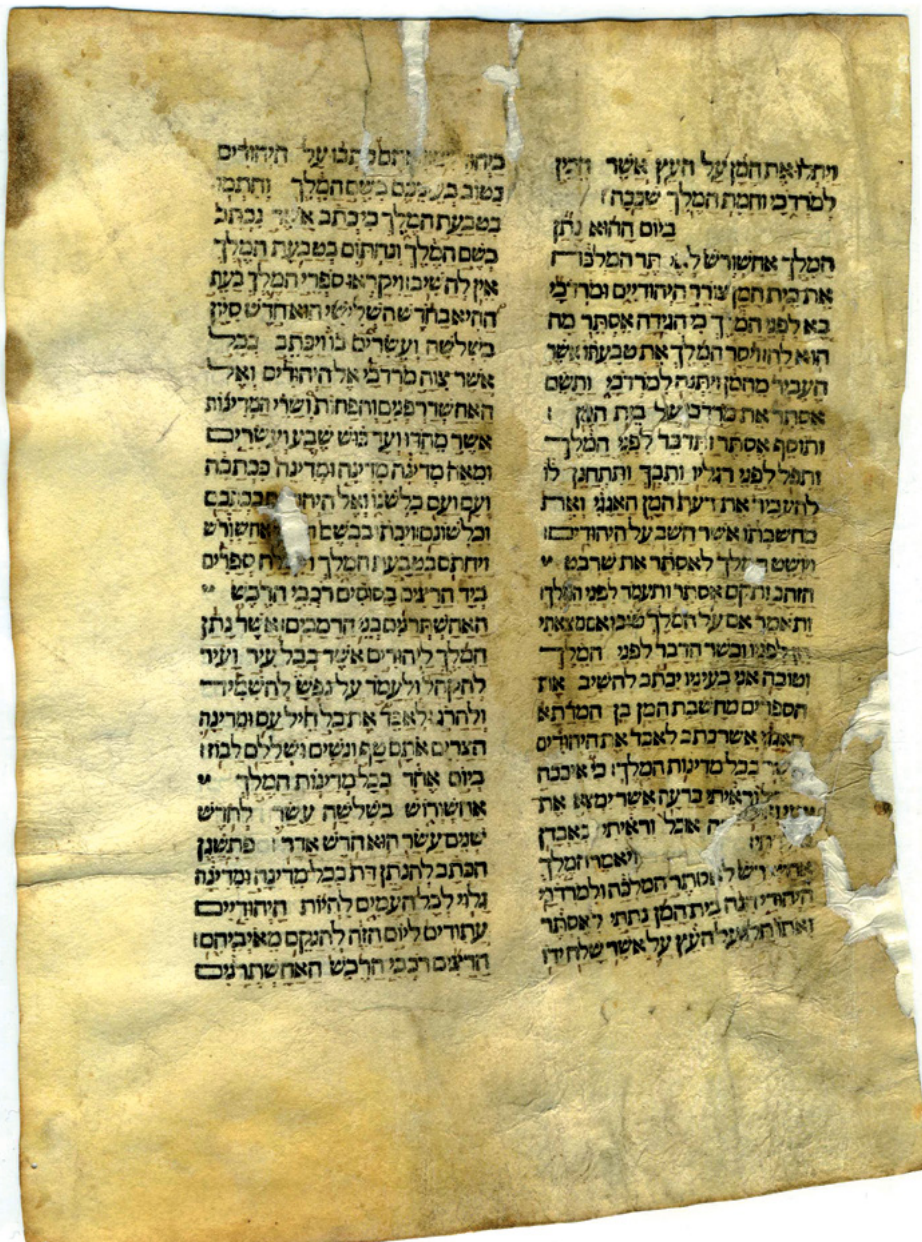 ויתלו את המן על העץ אשר הכין
למרדכי וחמת המלך שככה׃
ביום ההוא נתן
המלך אחשורוש המלכה
את בית המן צורר היהודיים ומרדכי
בא לפני המלך כי הגידה אסתר מה
הוא לה׃ ויסר המלך את טבעתו אשר
העביר מהמן ויתנה למרדכי ותשם
אסתר את מרדכי על בית המן ׃
ותוסף אסתר ותדבר לפני המלך
ותפל לפני רגליו ותבך ותתחנן לו
להעביר את רעת המן האגגי ואת
מחשבתו אשר חשב על היהודיים׃
ויושט המלך לאסתר את שרבט
הזהב ותקם אסתר ותעמד לפני המלך׃
ותאמר אם על המלך טוב ואם מצאתי
חן לפניו וכשר הדבר לפני המלך
וטובה אני בעיניו יכתב להשיב את
הספרים מחשבת המן בן המדתא
האגגי אשר כתב לאבד את היהודים
בכל מדינות המלך׃ כי איככה
וראיתי ברעה אשר ימצא את
אכל וראיתי באבדן
ויאמר המלך
לאסתר המלכה ולמרדכי
היהודי הנה בית המן נתתי לאסתר
ואתו תלו על העץ על אשר שלח ידו
כתבו על היהודים
כטוב בעיניכם בשם המלך וחתמו
בטבעת המלך כי כתב אשר נכתב
בשם המלך ונחתום בטבעת המלך
אין להשיב׃ ויקראו ספרי המלך בעת
ההיא בחדש השלישי הוא חדש סיון
בשלשה ועשרים בו ויכתב ככל
אשר צוה מרדכי אל היהודים ואל
האחשדרפנים והפחות ושרי המדינות
אשר מהדו ועד כוש שבע ועשרים
ומאה מדינה מדינה ומדינה ככתבה
ועם ועם כלשנו ואל ככתבם
וכלשונם׃ ויכתב בשם אחשורש
ויחתם בטבעת המלך ספרים
ביד הרצים בסוסים רכבי הרכש
האחשתרנים בני הרמכים׃ אשר נתן
המלך ליהודים אשר בכל עיר ועיר
להקהל ולעמד על נפשם להשמיד
ולהרג ולאבד את כל חיל עם ומדינה
הצרים אתם טף ונשים ושללם לבוז׃
ביום אחד בכל מדינות המלך
אחשורוש בשלשה עשר לחדש
שנים עשר הוא חדש אדר׃ פתשגן
הכתב להנתן דת בכל מדינה ומדינה
גלוי לכל העמים להיות היהודיים
עתודים ליום הזה להנקם מאיביהם׃
הרצים רכבי הרכש האחשתרנים